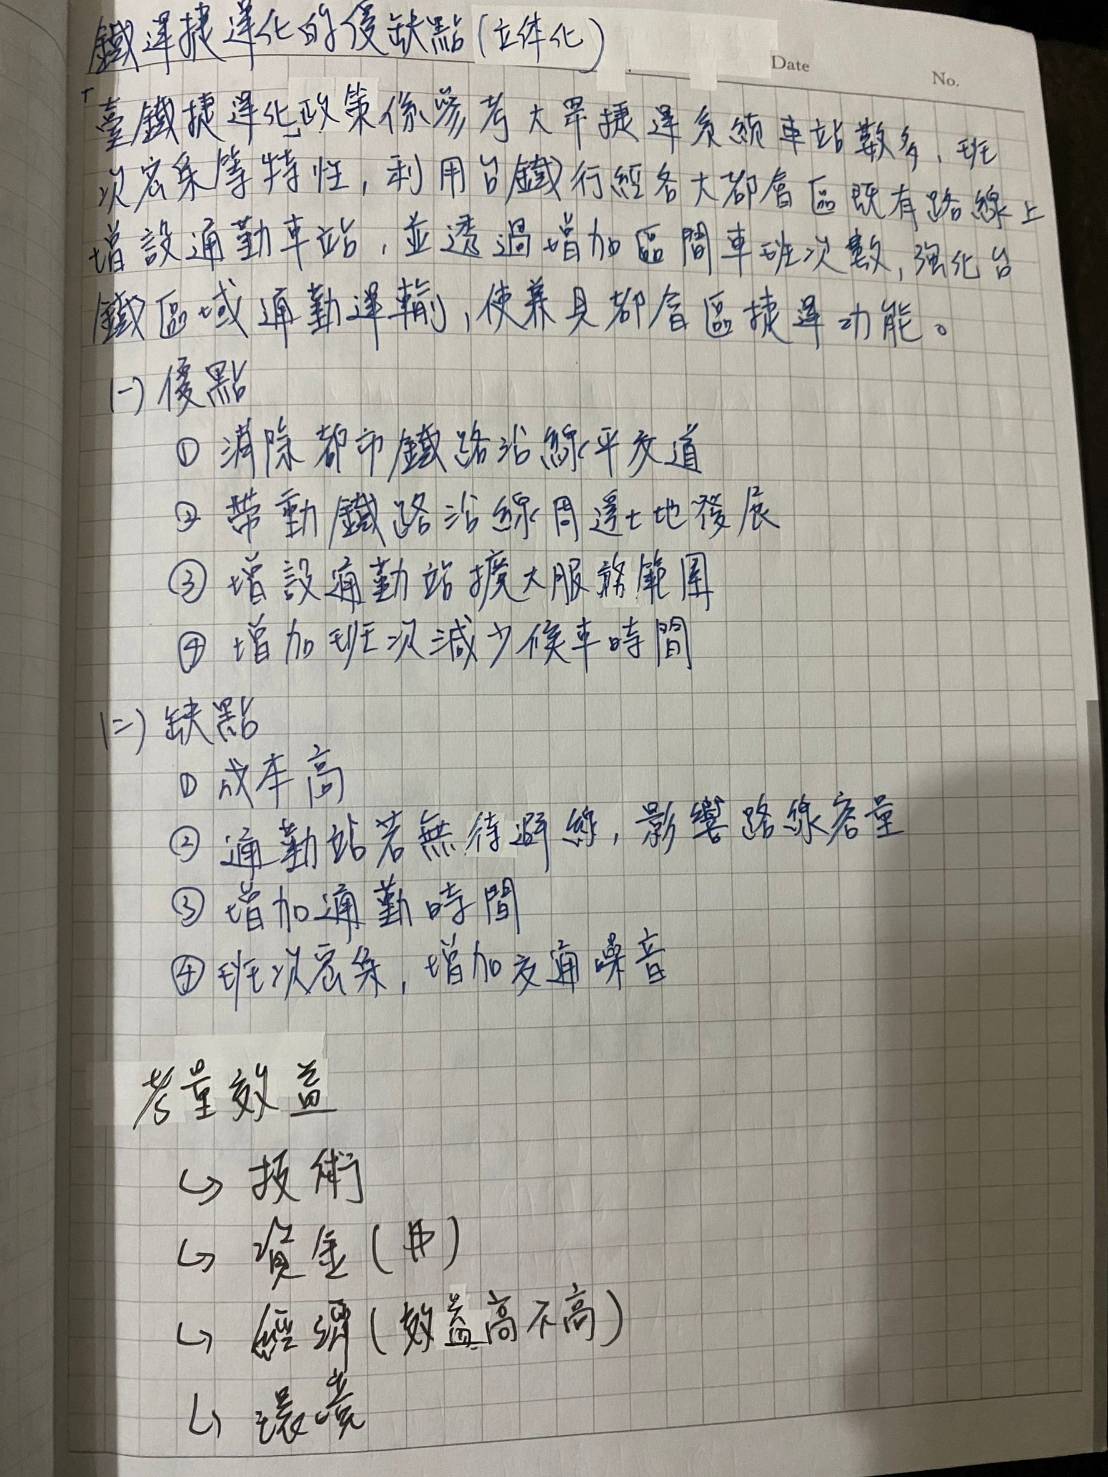 鐵運捷運化的優缺點(立体化)
Date
No.
「臺鐵捷運化」政策係參考大眾捷運系統車站數多、班
次密集等特性,利用台鐵行經各大都會區既有路線上
增設通勤車站,並透過增加區間車班次數,強化台
鐵區域通勤運輸,使兼具都會區捷運功能。
(一)優點
① 消除都市鐵路沿線平交道
② 帶動鐵路沿線周邊土地發展
③ 增設通勤站擴大服務範圍
④ 增加班次減少候車時間
(二)缺點
① 成本高
② 通勤站若無待避線,影響路線容量
③ 增加通勤時間
④ 班次密集,增加交通噪音
考量效益
↳ 技術
↳ 資金( )
↳ 經濟(效益高不高)
↳ 環境